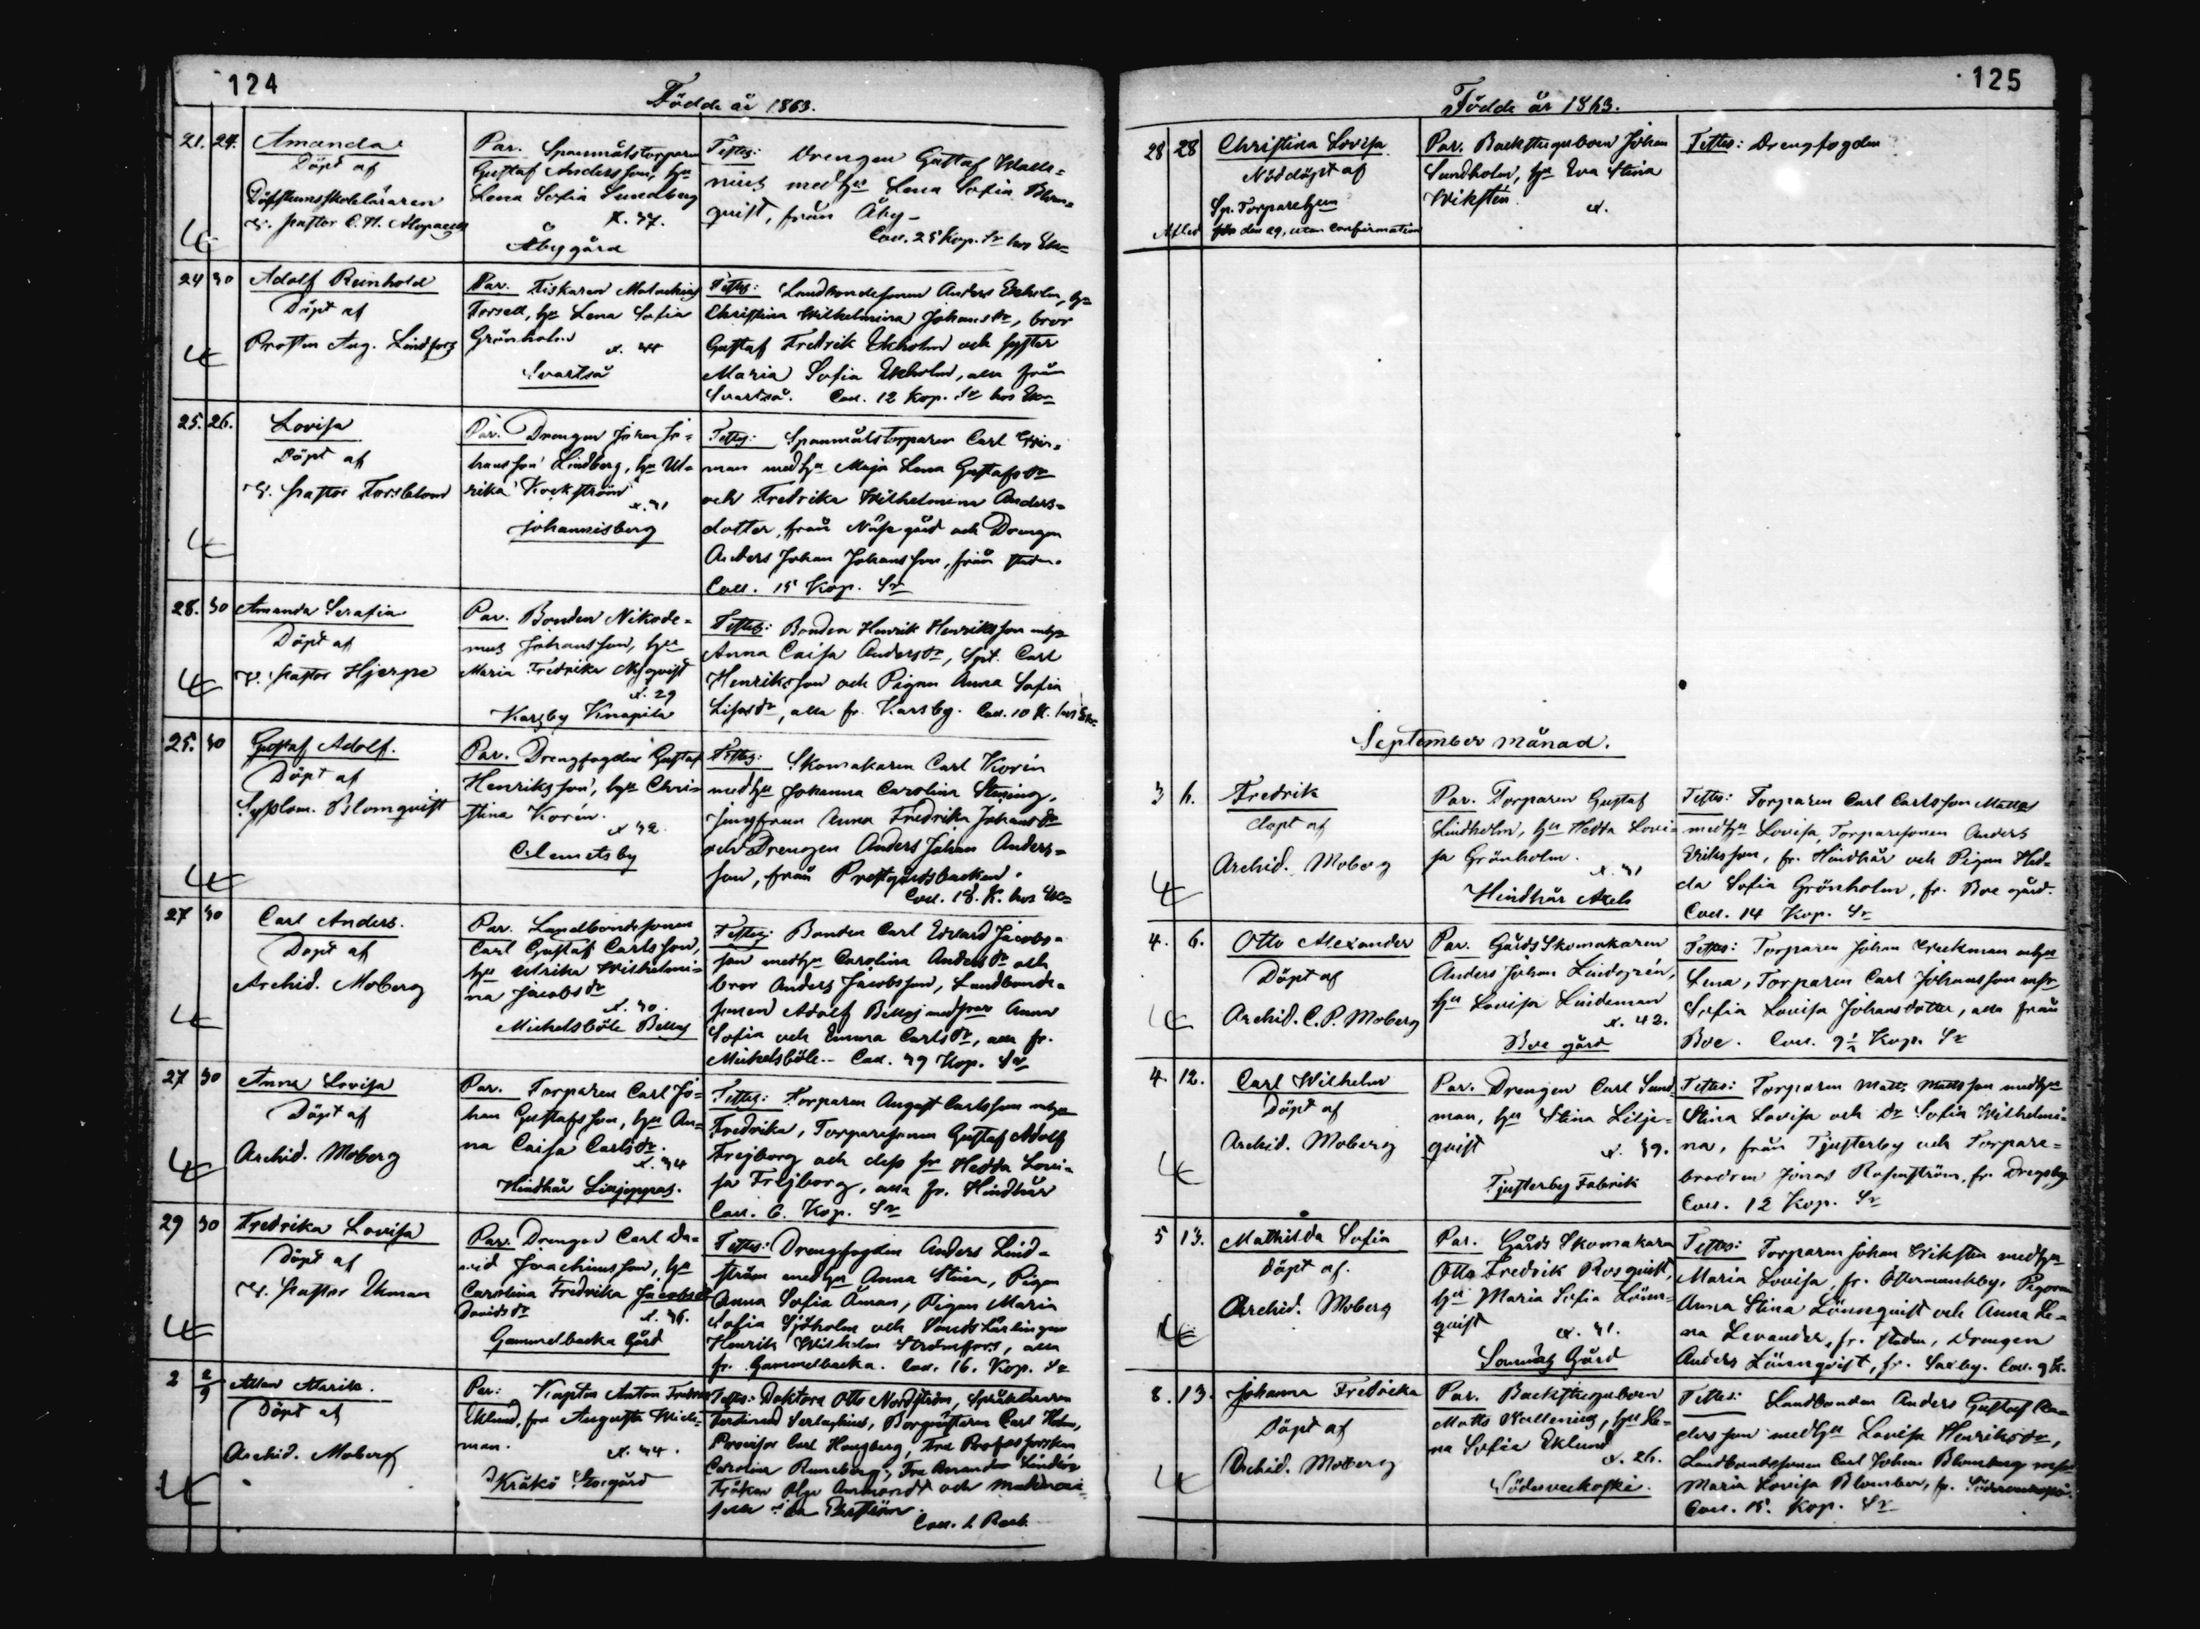 124
Födde år 1863.
21. 24. Amanda
Döpt af
v. pastor C. H. Alopaeus
Par. Spanmålstorparen
Gustaf Andersson, hu
Lena Sofia Lundberg
x. 37.
Åby gård
Testes: Drengen Gustaf Walle-
nius med hu Lena Sofia Blom-
quist, från Åby
Coll. 25 Kop. Sr
24 30 Adolf Reinhold
Döpt af
Prosten Aug. Lindfors
Par. Fiskaren Malachias
Forsell, hu Lena Sofia
Grönholm
x. 44
Svartså
Testes: Landbondesonen Anders Ekholm, hu
Christina Wilhelmina Johansdr, bror
Gustaf Fredrik Ekholm och syster
Maria Sofia Ekholm, alla från
Svartså. Coll. 12 Kop. Sr
25. 26. Lovisa
Döpt af
v. pastor Forsblom
Par. Drengen Johan Jo-
hansson Lindberg, hu Ul-
rika Kockström
x. 31
Johannisberg
Testes: Spanmålstorparen Carl
man med hu Maja Lena Gustafsdr
och Fredrika Wilhelmina Anders-
dotter, från Näse gård och Drengen
Anders Johan Johansson, från staden.
Coll. 15 Kop. Sr
28. 30 Amanda Serafia
Döpt af
v. pastor Hjerpe
Par. Bonden Nikode-
mus Johansson, hu
Maria Fredrika
x. 29
Karsby Knapila
Testes: Bonden Henrik Henriksson mhu
Anna Caisa Andersdr, Carl
Henriksson och Pigan Anna Sofia
alla fr. Karsby. Coll. 10 K.
25. 30 Gustaf Adolf.
Döpt af
Blomqvist
Par. Drengfogden Gustaf
Henriksson, hu Chri-
stina Korén.
x 32.
Clemetsby
Testes: Skomakaren Carl Korén
med hu Johanna Carolina
jungfrun Anna Fredrika Johansdr
och Drengen Anders Johan Anders-
son, från Prestgårdsbacken.
Coll. 18. K.
27 30 Carl Anders.
Döpt af
Archid. Moberg
Par. Landbondesonen
Carl Gustaf Carlsson,
hu Ulrika Wilhelmi-
na Jacobsdr
x. 30.
Michelsböle Bellas
Testes: Bonden Carl Edvard Jacobs-
son med hu Carolina Andersdr och
bror Anders Jacobsson, Landbonde-
sonen Adolf Bellas med Anna
Sofia och Emma Carlsdr, alla fr.
Michelsböle. Coll. 39 Kop. Sr
27 30 Anna Lovisa
Döpt af
Archid. Moberg
Par. Torparen Carl Jo-
han Gustafsson, hu An-
na Caisa Carlsdr.
x. 34
Hindhår
Testes: Torparen August Carlsson mhu
Fredrika, Torparesonen Gustaf Adolf
Frejborg och dess sr Hedda Lovi-
sa Frejborg, alla fr. Hindhår
Coll. 6. Kop. Sr
29 30 Fredrika Lovisa
Döpt af
v. pastor Ekman
Par. Drengen Carl Da-
vid Joachimsson, hu
Carolina Fredrika Jacobsdr
Davidsdr
x. 36.
Gammelbacka Gård
Testes: Drengfogden Anders Lind-
ström med hu Anna Stina, Pigan
Anna Sofia Åman, Pigan Maria
Sofia Sjöholm och
Henrik Wilhelm Strömfors, alla
fr. Gammelbacka. Coll. 16. Kop. Sr
2 2/9 Allan Alarik.
Döpt af
Archid. Moberg
Par: Kapten Anton
Eklund, fru Augusta Wick-
man.
x. 34.
Kråkö
Testes: Doktorn Otto Nordström,
Ferdinand Borgmästaren Carl Holm,
Provisor Carl Hougberg, Fru
Carolina Runeberg, Fru Amanda
Fröken och
Coll. 1 Rub.
125
Födde år 1863.
28 28 Christina Lovisa
Nöddöpt af
Sp. Torpare
Afled den 29, utan confirmation
Par. Backstuguboen Johan
Sundholm, hu Eva Stina
Wikstén.
x.
Testes: Drengfogden
September månad.
3 6. Fredrik
döpt af
Archid. Moberg
Par. Torparen Gustaf
Lindholm, hu Hedda Lovi-
sa Grönholm.
x. 31
Hindhår Axels
Testes: Torparen Carl Carlsson
med hu Lovisa, Torparesonen Anders
Eriksson, fr. Hindhår och Pigan Hed-
da Sofia Grönholm, fr. Boe gård.
Coll. 14 Kop. Sr
4. 6. Otto Alexander
Döpt af
Archid. C. P. Moberg
Par. Gårds Skomakaren
Anders Johan Lindgrén,
hu Lovisa Lindeman
x. 42.
Boe gård
Testes: Torparen Johan mhu
Lena, Torparen Carl Johansson
Sofia Lovisa Johansdotter, alla från
Boe. Coll. 9½ Kop. Sr
4. 12. Carl Wilhelm
Döpt af
Archid. Moberg
Par. Drengen Carl Sund-
man, hu Stina Lilje-
quist
x. 39.
Tjusterby Fabrik
Testes: Torparen Matts Mattsson med hu
Stina Lovisa och dr Sofia Wilhelmi-
na, från Tjusterby och Torpare-
brodren Jonas Rosenström, fr.
Coll. 12 Kop. Sr
5 13. Mathilda Sofia
döpt af.
Archid. Moberg
Par. Gårds Skomakaren
Otto Fredrik Rosquist,
hu Maria Sofia Lönn-
quist
x. 31.
Sannäs Gård
Testes: Torparen Johan Wiksten med hu
Maria Lovisa, fr. Pigorna
Anna Stina Lönnquist och Anna Le-
na Levander, fr. staden, Drengen
Anders Lönnqvist, fr. Saxby. Coll. 9 K.
8. 13. Johanna Fredrika
Döpt af
Archid. Moberg
Par. Backstuguboen
Matts Wallenius, hu Le-
na Sofia Eklund
x. 26.
Söderveckoski.
Testes: Landbonden Anders Gustaf An-
dersson med hu Lovisa Henriksdr,
Landbondesonen Carl Johan Blomberg
Maria Lovisa Blomberg, fr.
Coll. 15. Kop. Sr